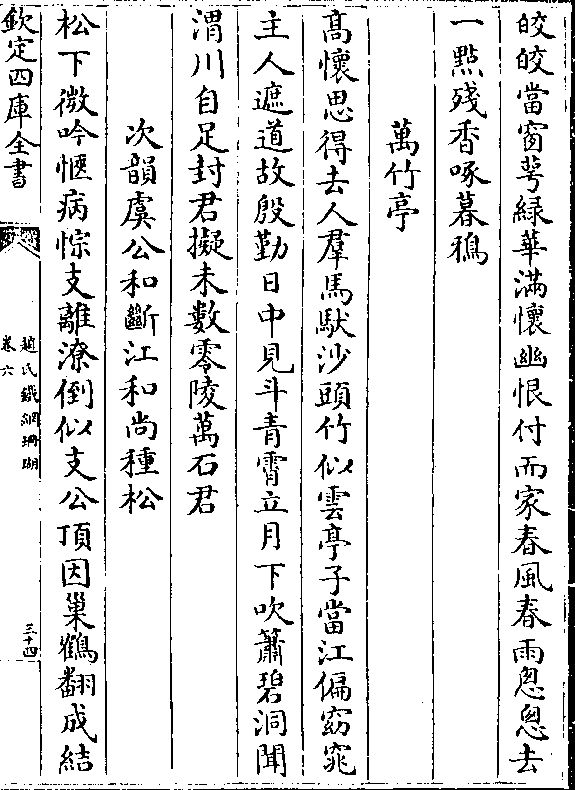 皎皎當窗萼緑華滿懷幽恨付而家春風春雨悤悤去
一㸃殘香啄暮鴉
萬竹亭
髙懷思得去人羣馬馱沙頭竹似雲亭子當江偏窈窕
主人遮道故殷勤日中見斗青霄立月下吹簫碧洞聞
渭川自足封君擬未數零陵萬石君
次韻虞公和斷江和尚種松
松下微吟愜病悰支離潦倒似支公頂因巢鶴翻成結
欽定四庫全書
趙氏鐵網珊瑚
卷六
三十四